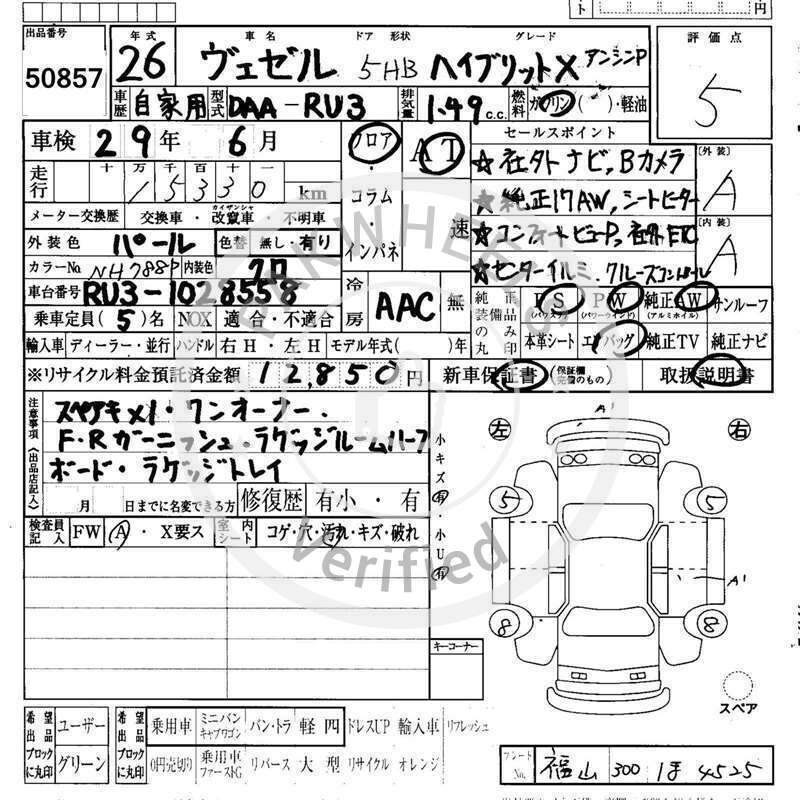 ト 円
出品番号 年式 車名 ドア 形状 グレード 評価点
50857 26 ヴェゼル 5HB ハイブリットX アンシンP 5
車歴 自家用 型式 DAA-RU3 排気量 1.49 c.c. 燃料 ガソリン( )・軽油
車検 29年 6月 フロア AT セールスポイント
走行 十 万 千 百 十 15330 km コラム ☆社外ナビ,Bカメラ [外装] A
☆純正17AW,シートヒーター
メーター交換歴 交換車・改竄車・不明車 カイザンシャ インパネ 速 [内装] A
外装色 パール 色替 無し・有り ☆コンフォートビューP,社外ETC
カラーNo. NH788P 内装色 クロ ☆センターイルミ.クルーズコントロール
車台番号 RU3-1028558 冷房 AAC 無 純正装備品の み丸印 PS (パワステ) PW (パワーウインド) 純正AW (アルミホイル) サンルーフ
乗車定員(5)名 NOX 適合・不適合 本革シート エアバッグ 純正TV 純正ナビ
輸入車 ディーラー・並行 ハンドル 右H・左H モデル年式( )年
※リサイクル料金預託済金額 12,850円 新車保証書 (保証欄完備のもの) 取扱説明書
注意事項(出品店記入) スペアキ×1・ワンオーナー.
F・Rガーニッシュ・ラゲッジルームハーフ
ボード・ラゲッジトレイ
月 日までに名変できる方 修復歴 有小・有
検査員記入 FW A・X要ス 室内シート コゲ・穴・汚れ・キズ・破れ
小キズ有・小U有
キーコーナー
A1
左 右
5 5
A1
8 8
スペア
希望出品ブロックに丸印 ユーザー グリーン
希望出品ブロックに丸印 乗用車 ミニバンキャブワゴン バン・トラ 軽四 ドレスUP 輸入車 リフレッシュ
0円売切り 乗用車ファーストG リバース 大型 リサイクル オレンジ
プレートNo. 福山 300 1ま 4525
CARKWHEELS
Verified